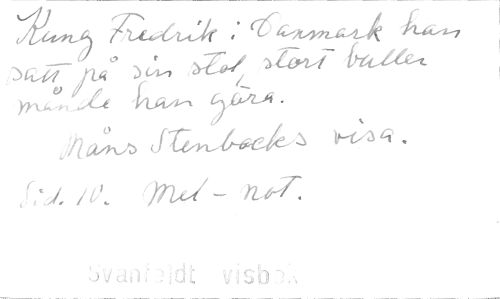 Kung Fredrik i Danmark han
satt på sin stol, stort buller
månde han göra.
Måns Stenbocks visa.
Sid. 10. Mel-not.
visbok